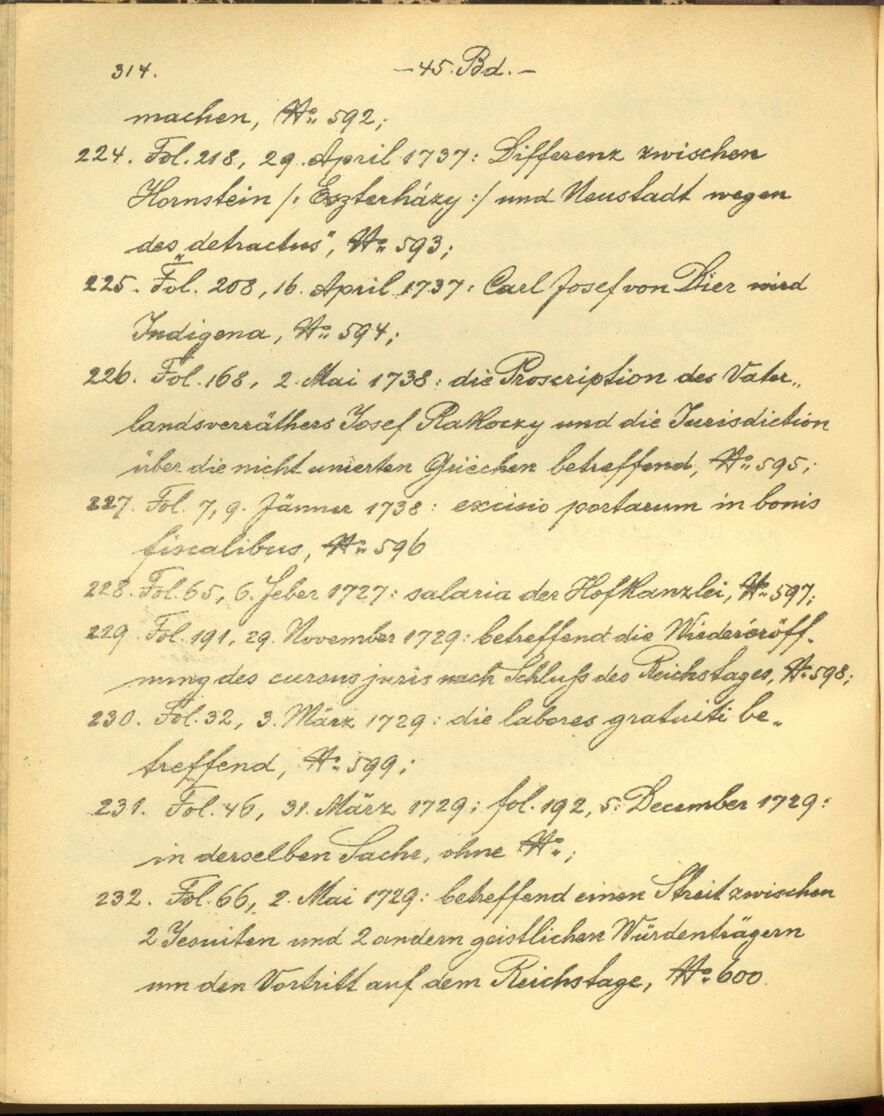 314. – 45. Bd. –
machen, No: 592;
224. Fol. 218, 29. April 1737: Differenz zwischen
Hornstein /: Eszterházy :/ und Neustadt wegen
des „detractus", No: 593;
225. Fol. 208, 16. April 1737: Carl Josef von Dier wird
Indigena, No: 594;
226. Fol. 168, 2. Mai 1738: die Proscription des Vater„
landsverräthers Josef Rakoczy und die Jurisdiction
über die nicht unierten Griechen betreffend, No: 595;
227. Fol. 7, 9. Jänner 1738: excisio portarum in bonis
fiscalibus, No: 596
228. Fol. 65, 6. Feber 1727: salaria der Hofkanzlei, No: 597;
229. Fol. 191, 29. November 1729: betreffend die Wiedereröff„
nung des cursus juris nach Schluß des Reichstages, No: 598;
230. Fol. 32, 3. März 1729: die labores gratuiti be„
treffend, No: 599;
231. Fol. 46, 31. März 1729; fol. 192, 5. December 1729:
in derselben Sache, ohne No:;
232. Fol. 66, 2. Mai 1729: betreffend einen Streit zwischen
2 Jesuiten und 2 andern geistlichen Würdenträgern
um den Vortritt auf dem Reichstage, No: 600.